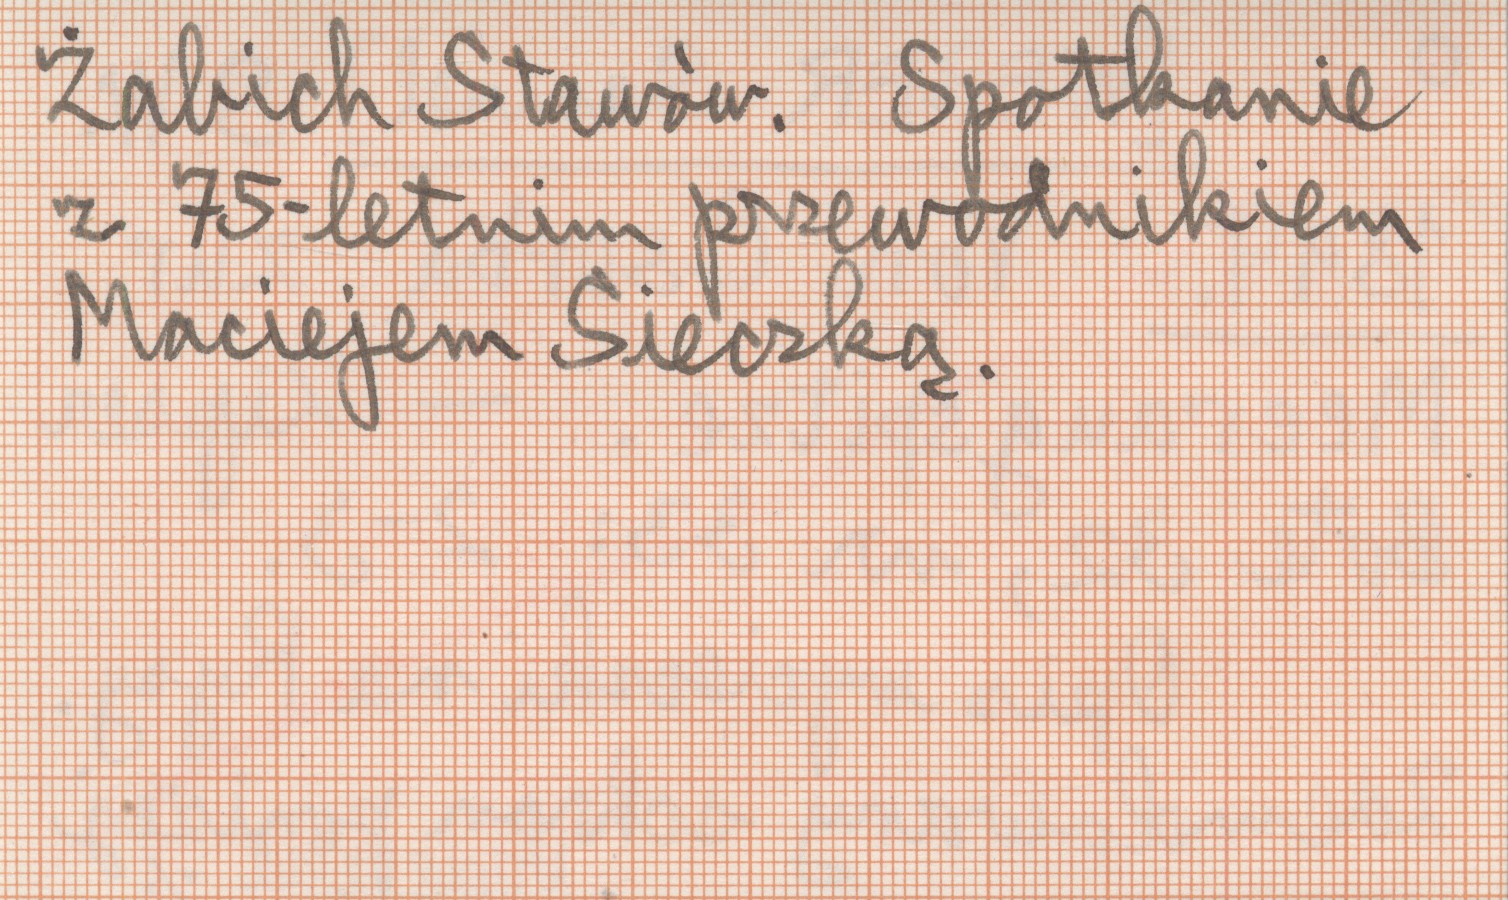 Żabich Stawów. Spotkanie
z 75-letnim przewodnikiem
Maciejem Sieczką.